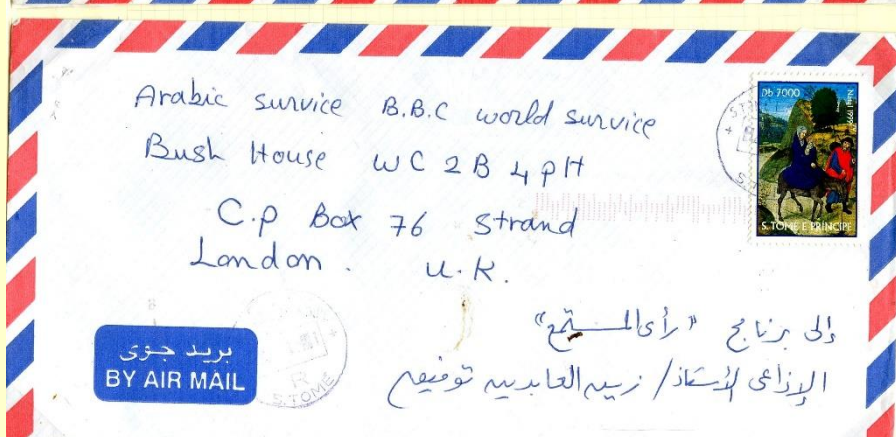 Arabic survice B.B.C world survice
Bush House WC 2B 4 pH
C.p Box 76 Strand
London. U.K.
Db 7000
Natal 1999
S. TOMÉ E PRÍNCIPE
إلى برنامج "رأى المستمع"
الإذاعى الأستاذ / زين العابدين توفيق
بريد جوى
BY AIR MAIL
R
S. TOMÉ